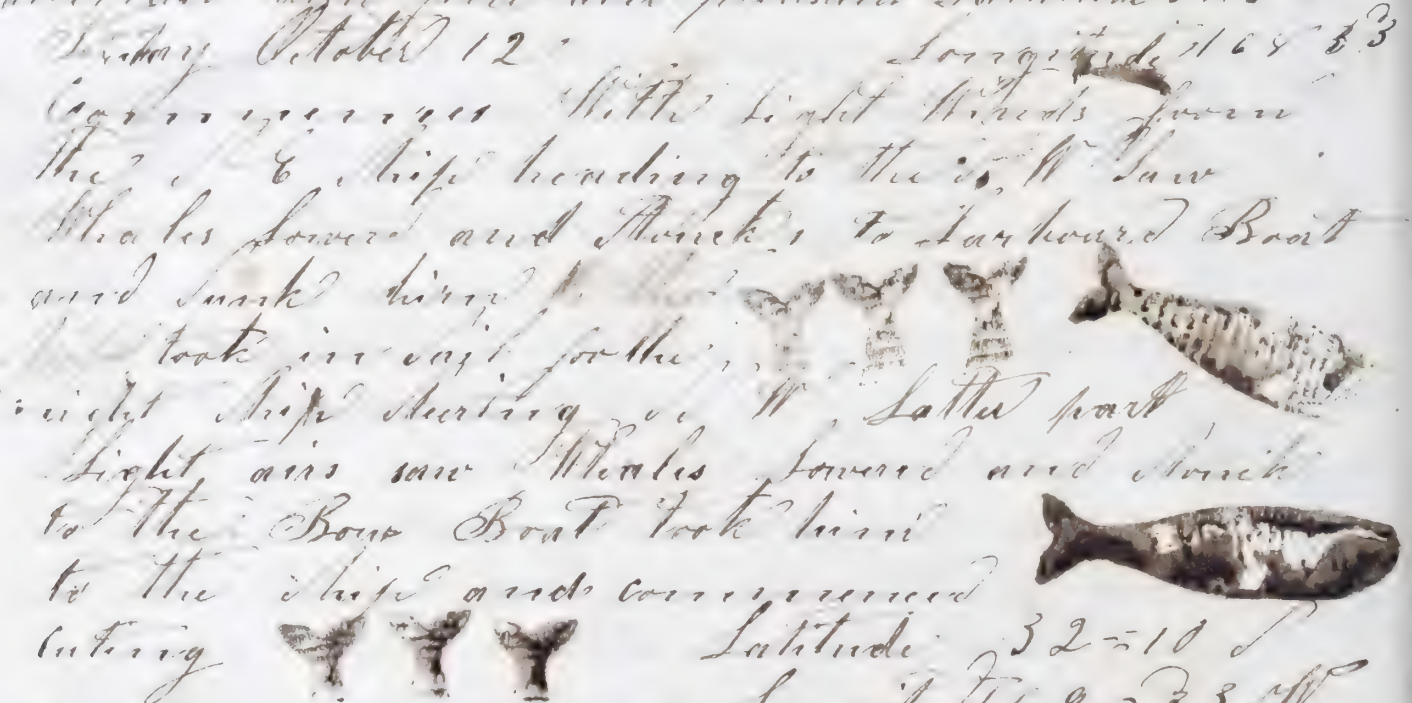 October 12 Longitude 168
Commences With Light Winds from
the S E Ship heading to the S, W Saw
Whales Lowerd and Stonck to Larboard Boat
and Sunk him
took in sail for the
night Ship stering S. W, Latter part
Light airs saw Whales Lowerd and Stonck
to the Bow Boat took him
to the Ship and commenced
cuting Latitude 32=10 S